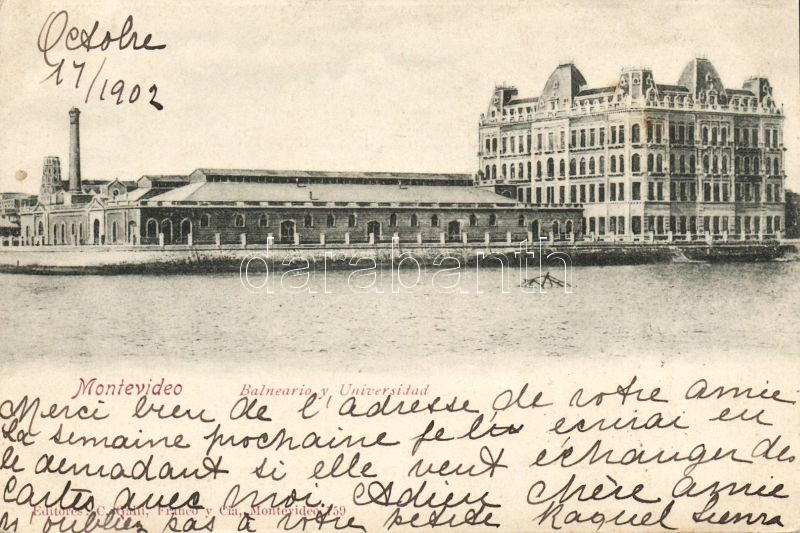 Octobre
17/1902
darabanth
Montevideo Balneario y Universidad
Merci bien de l'adresse de votre amie
La semaine prochaine je lui ecrirai en
le demadant si elle veut échanger des
Cartes avec moi. Adieu chère amie
n'oubliez pas à votre petite Raquel Sierra
Editores: C. Galli, Franco y Cia, Montevideo 159